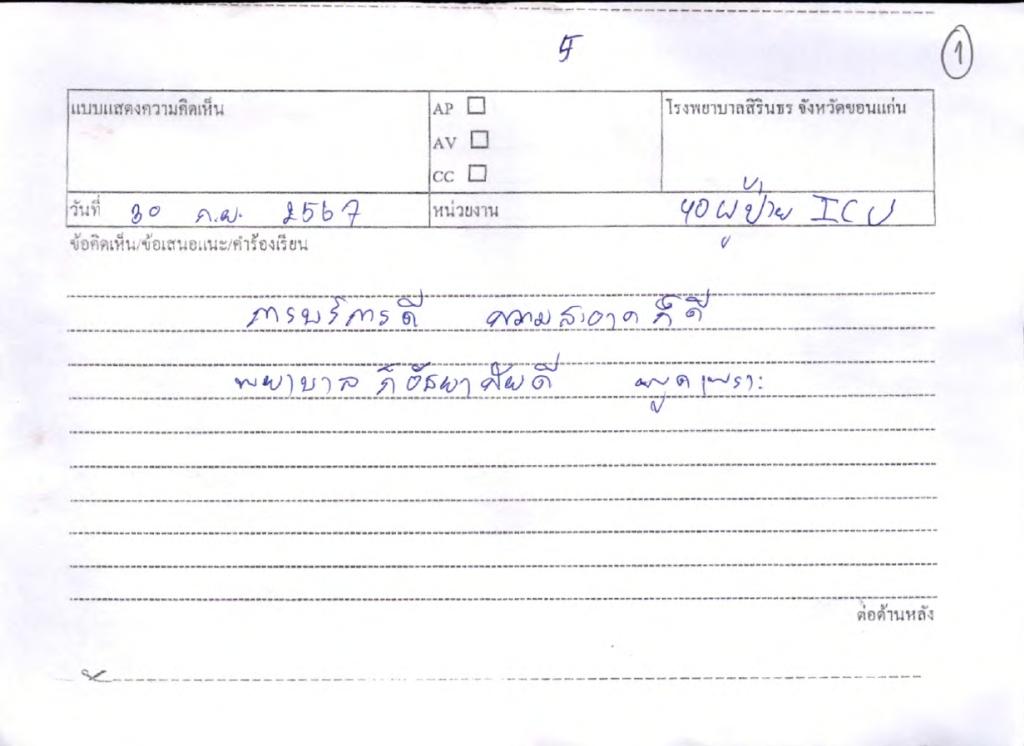 5
1
แบบแสดงความคิดเห็น
AP
โรงพยาบาลสิรินธร จังหวัดขอนแก่น
AV
CC
วันที่ 30 ก.ย. 2567
หน่วยงาน ผู้ป่วย ICU
ข้อคิดเห็น/ข้อเสนอแนะ/คำร้องเรียน
การบริการดี ความสะอาด ก็ดี
พยาบาล ก็อัธยาศัยดี พูดเพราะ
ต่อด้านหลัง